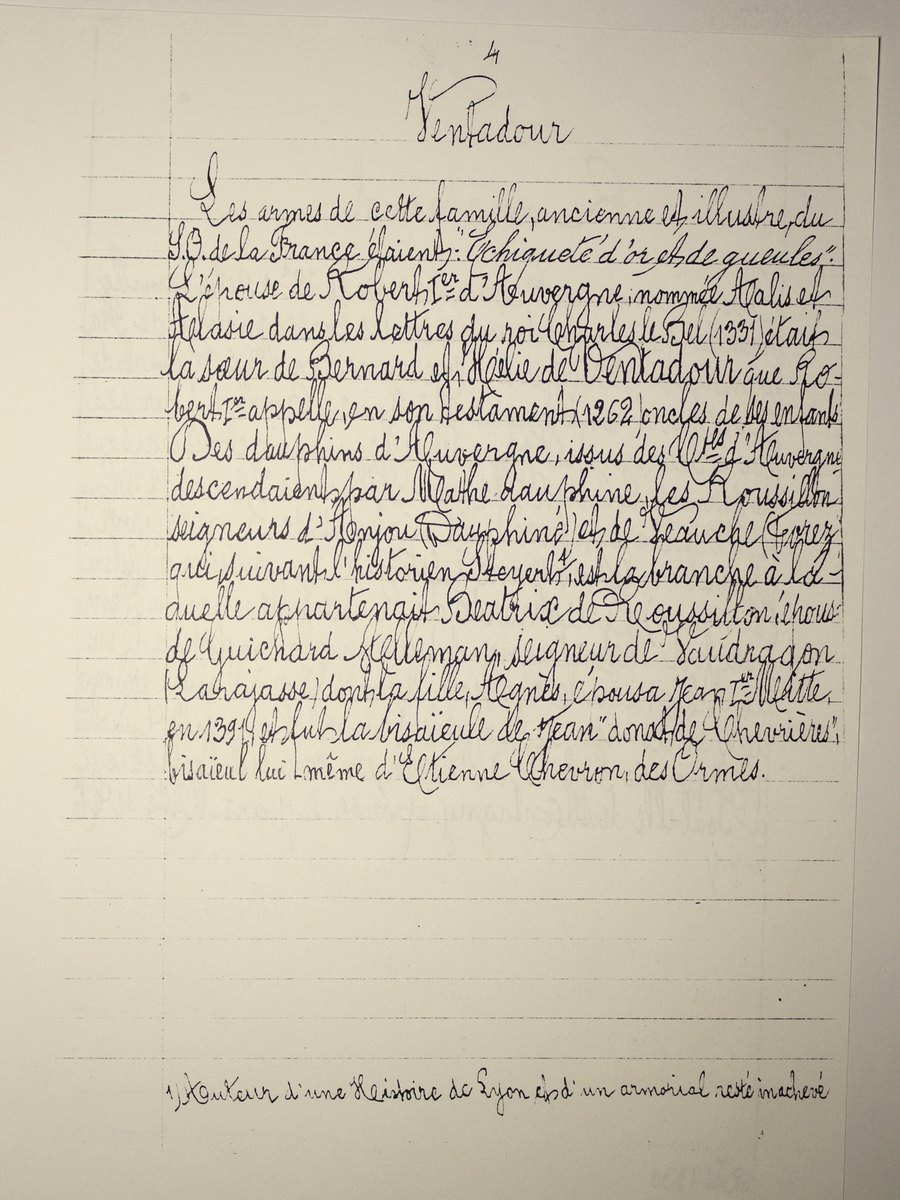 4
Ventadour
Les armes de cette famille, ancienne et illustre, du
S.O. de la France étaient: "Echiqueté d'or et de gueules".
L'épouse de Robert Ier d'Auvergne, nommée Aalis et
Alasie dans les lettres du roi Charles le Bel (1331) était
la sœur de Bernard et d'Hélie de Ventadour que Ro-
bert Ier appelle, en son testament (1262) oncles de ses enfants
Des dauphins d'Auvergne, issus des Ctes d'Auvergne
descendaient par Mathe dauphine, les Roussillon
seigneurs d'Anjou (Dauphiné) et de Veauche (Forez)
qui, suivant l'historien Steyert 1, est la branche à la-
quelle appartenait Béatrix de Roussillon, épouse
de Guichard Alleman, seigneur de Vaudragon
(Larajasse) dont la fille, Agnès, épousa Jean Ier Mitte,
en 1391, et fut la bisaïeule de Jean "donat de Chevrières",
bisaïeul lui-même d'Etienne Chevron, des Ormes.
1) Auteur d'une Histoire de Lyon et d'un armorial resté inachevé